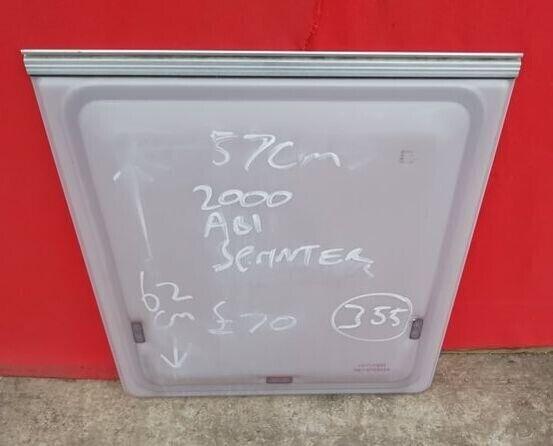 57cm
2000
ABI
SPRINTER
62
cm
£70
355